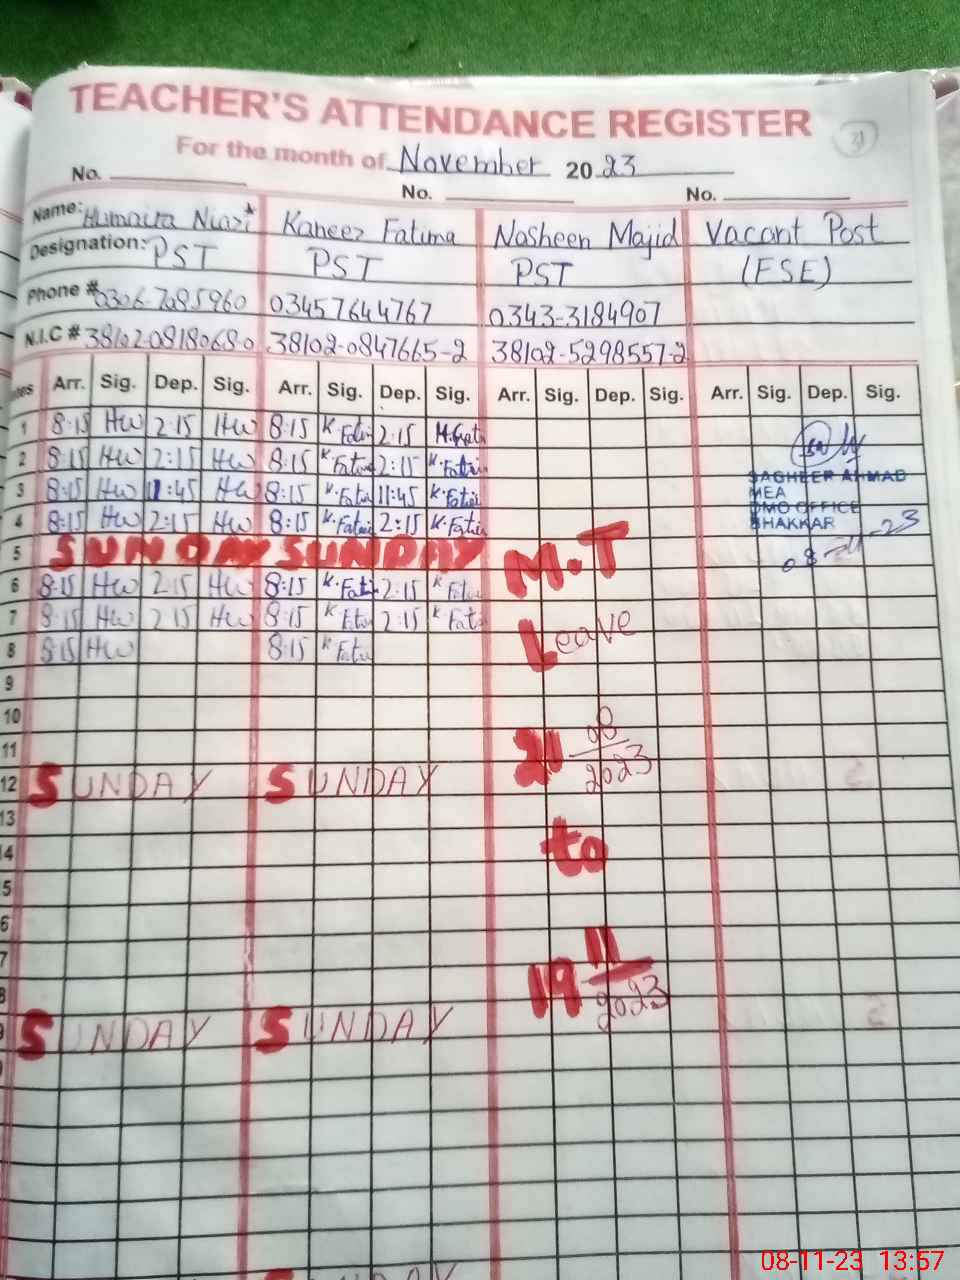 TEACHER'S ATTENDANCE REGISTER
31
For the month of November 2023
No. No. No.
Name: Humaira Niazi Kaneez Fatima Nosheen Majid Vacant Post
Designation: PST PST PST (ESE)
Phone # 0306-7085960 03457644767 0343-3184907
N.I.C # 38102-0818068-0 38102-0847665-2 38102-5298557-2
Arr. Sig. Dep. Sig. Arr. Sig. Dep. Sig. Arr. Sig. Dep. Sig. Arr. Sig. Dep. Sig.
1 8:15 HW 2:15 HW 8:15 K.Fati 2:15
2 8:15 HW 2:15 HW 8:15 K.Fati 2:15 K.Fati
SAGHEER AHMAD
3 8:15 HW 11:45 HW 8:15 K.Fati 11:45 K.Fati MEA
DMO OFFICE
4 8:15 HW 2:15 HW 8:15 K.Fati 2:15 K.Fati BHAKKAR
5 SUNDAY SUNDAY M.T 08-11-23
6 8:15 HW 2:15 HW 8:15 K.Fati 2:15 K.Fati
7 8:15 HW 2:15 HW 8:15 K.Fati 2:15 K.Fati Leave
8 8:15 HW 8:15 K.Fati
9
10
11 21 08/2023
12 SUNDAY SUNDAY
13
4 to
5
6
7
8 19 11/2023
9 SUNDAY SUNDAY
08-11-23 13:57